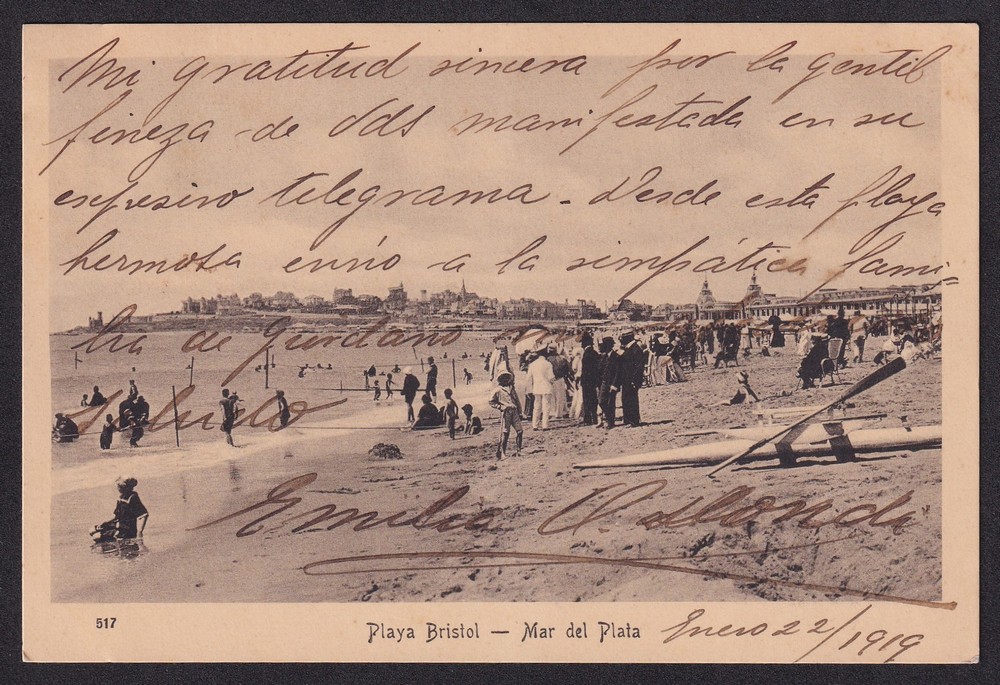 Mi gratitud sincera por la gentil
fineza de Uds manifestada en su
espresivo telegrama - Desde esta playa
hermosa envío a la simpática fami=
lia de Giordano mi
saludo
Emilia
517
Playa Bristol — Mar del Plata
Enero 22/1919